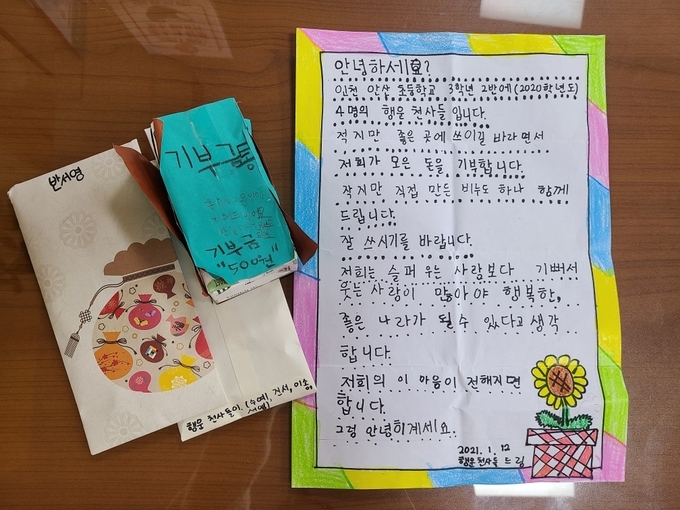 반서영
기부금통
기부금
"500원"
행운 천사들이
안녕하세요?
인천 안산 초등학교 3학년 2반에(2020학년도)
4명의 행운 천사들 입니다.
적지만 좋은 곳에 쓰이길 바라면서
저희가 모은 돈을 기부합니다.
작지만 직접 만든 비누도 하나 함께
드립니다.
잘 쓰시기를 바랍니다.
저희는 슬퍼 우는 사람보다 기뻐서
웃는 사람이 많아야 행복한,
좋은 나라가 될 수 있다고 생각
합니다.
저희의 이 마음이 전해지면
합니다.
그럼 안녕히계세요.
2021. 1. 12
행운천사들 드림